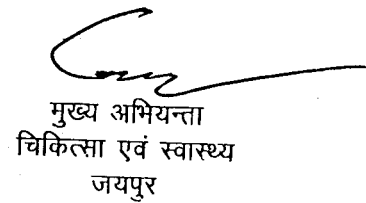 मुख्य अभियन्ता
चिकित्सा एवं स्वास्थ्य
जयपुर